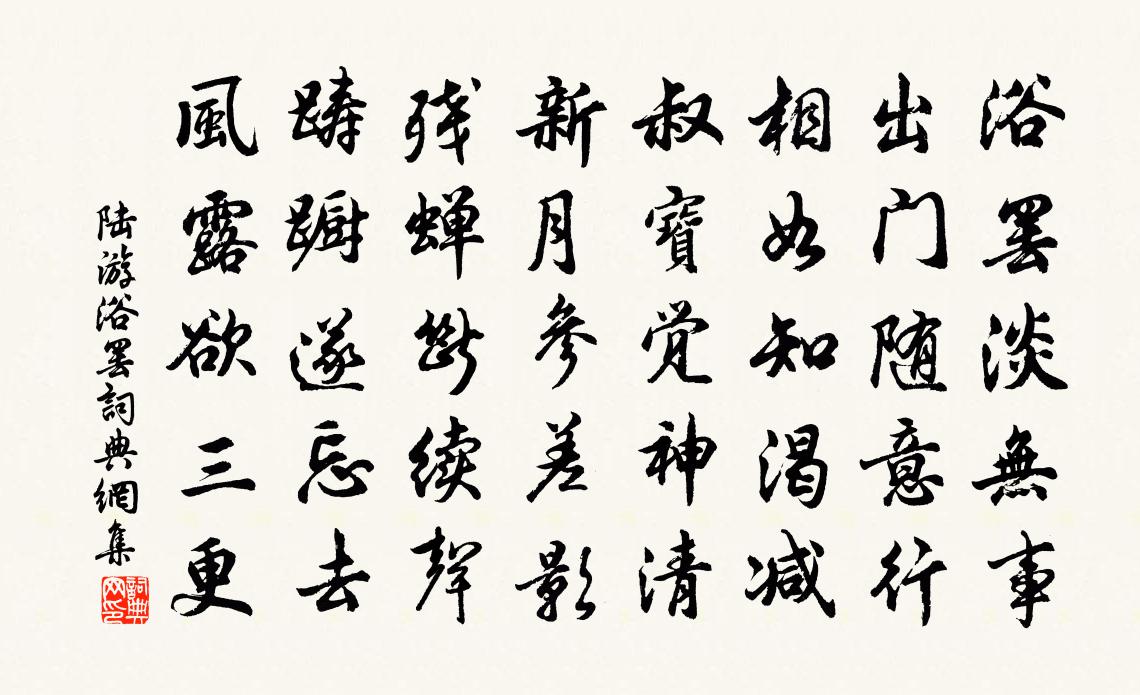 浴罢淡無事
出门随意行
相如知渴减
叔寶覚神清
新月參差影
残蝉断续聲
踌蹰遂忘去
風露欲三更
陆游浴罢詞典網集
詞典網印